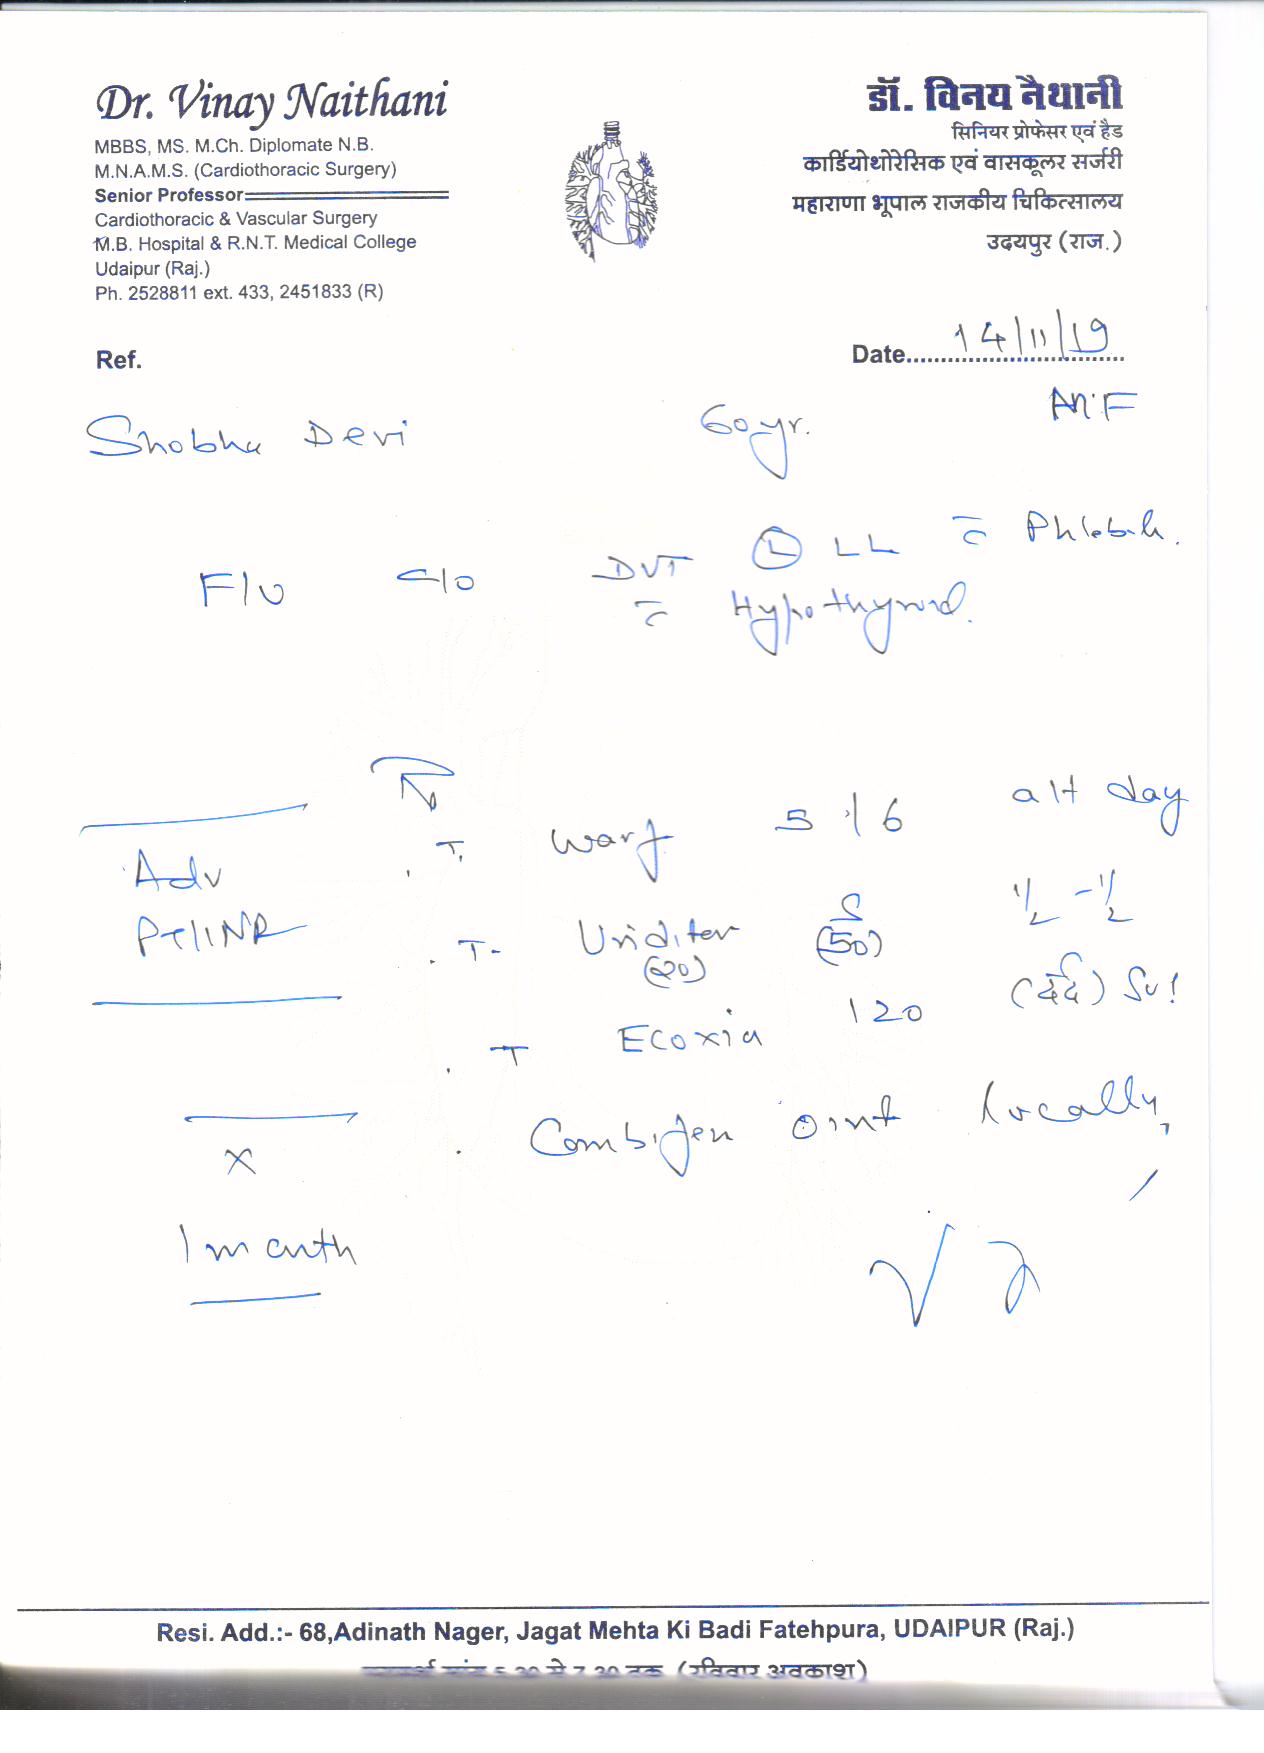 Dr. Vinay Naithani
MBBS, MS. M.Ch. Diplomate N.B.
M.N.A.M.S. (Cardiothoracic Surgery)
Senior Professor
Cardiothoracic & Vascular Surgery
M.B. Hospital & R.N.T. Medical College
Udaipur (Raj.)
Ph. 2528811 ext. 433, 2451833 (R)
डॉ. विनय नैथानी
सिनियर प्रोफेसर एवं हैड
कार्डियोथोरेसिक एवं वासकूलर सर्जरी
महाराणा भूपाल राजकीय चिकित्सालय
उदयपुर (राज.)
Ref.
Date 14/11/19
Shobha Devi 60yr. F
F/U C/O DVT L LL c̄ Phlebit.
c̄ Hypothyroid.
Adv
PT/INR
T. Warf 5/6 alt day
T- Uriditer (20) S (50) 1/2 - 1/2
T Ecoxia 120 (दर्द)
Combijen oint locally
x
1 month
Resi. Add.:- 68,Adinath Nager, Jagat Mehta Ki Badi Fatehpura, UDAIPUR (Raj.)
5.30 से 7.30 तक (रविवार अवकाश)